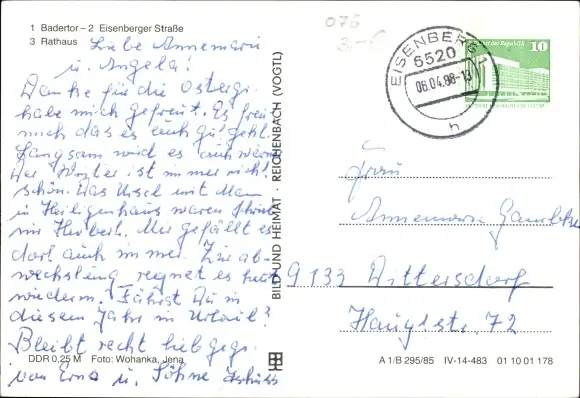 1 Badertor – 2 Eisenberger Straße
3 Rathaus
Liebe Annemarie
u. Angela!
Danke für die Ostergr.
habe mich gefreut. Es freut
mich das es euch gut geht.
Langsam wird es auch warm
Der Winter ist immer nicht
schön. Das Ursel mit Mann
in Heiligenhaus waren
mir Herbert. Mir gefällt es
dort auch immer. Zur ab-
wechslung regnet es heut
wiederm. Fährst Du in
diesem Jahr in Urlaub?
Bleibt recht lieb gegr.
von Erna u. Söhne
DDR 0,25 M Foto: Wohanka, Jena
BILD UND HEIMAT · REICHENBACH (VOGTL)
076
EISENBERG 1
6520
06.04.88-13
h
10
Frau
Annemarie
9133 Dittersdorf
Hauptstr. 72
A 1/B 295/85 IV-14-483 01 10 01 178